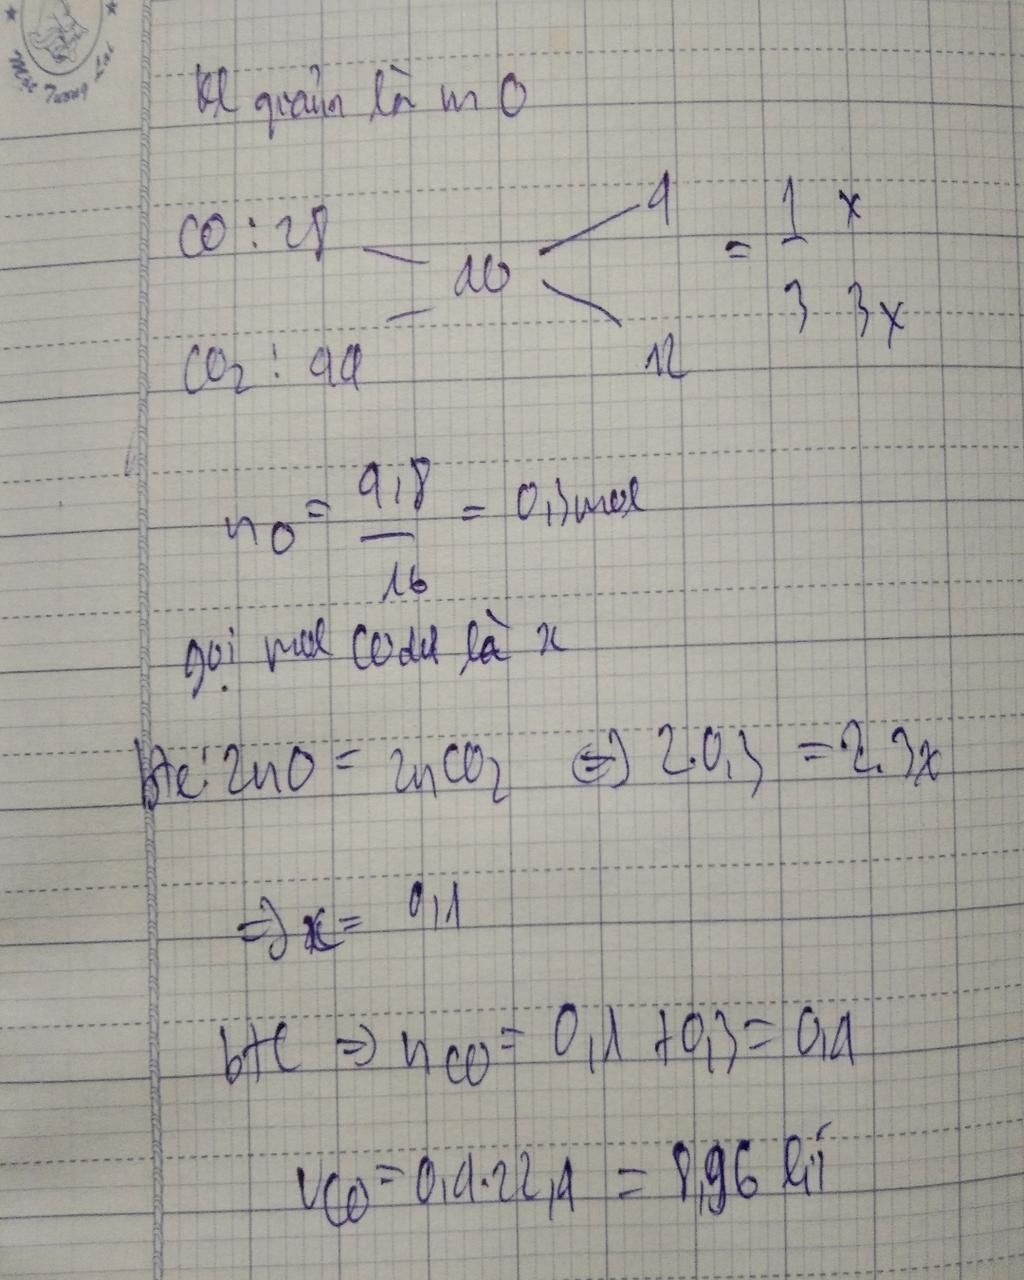 Mộc Tương Lai
kl giảm là m O
CO : 28
4
= 1 x
40
3 3x
CO2 : 44
12
nO = 4,8 / 16 = 0,3 mol
gọi mol CO dư là x
bte: 2nO = 2nCO2 <=> 2.0,3 = 2.3x
=> x = 0,1
btC => nCO = 0,1 + 0,3 = 0,4
VCO = 0,4.22,4 = 8,96 lít